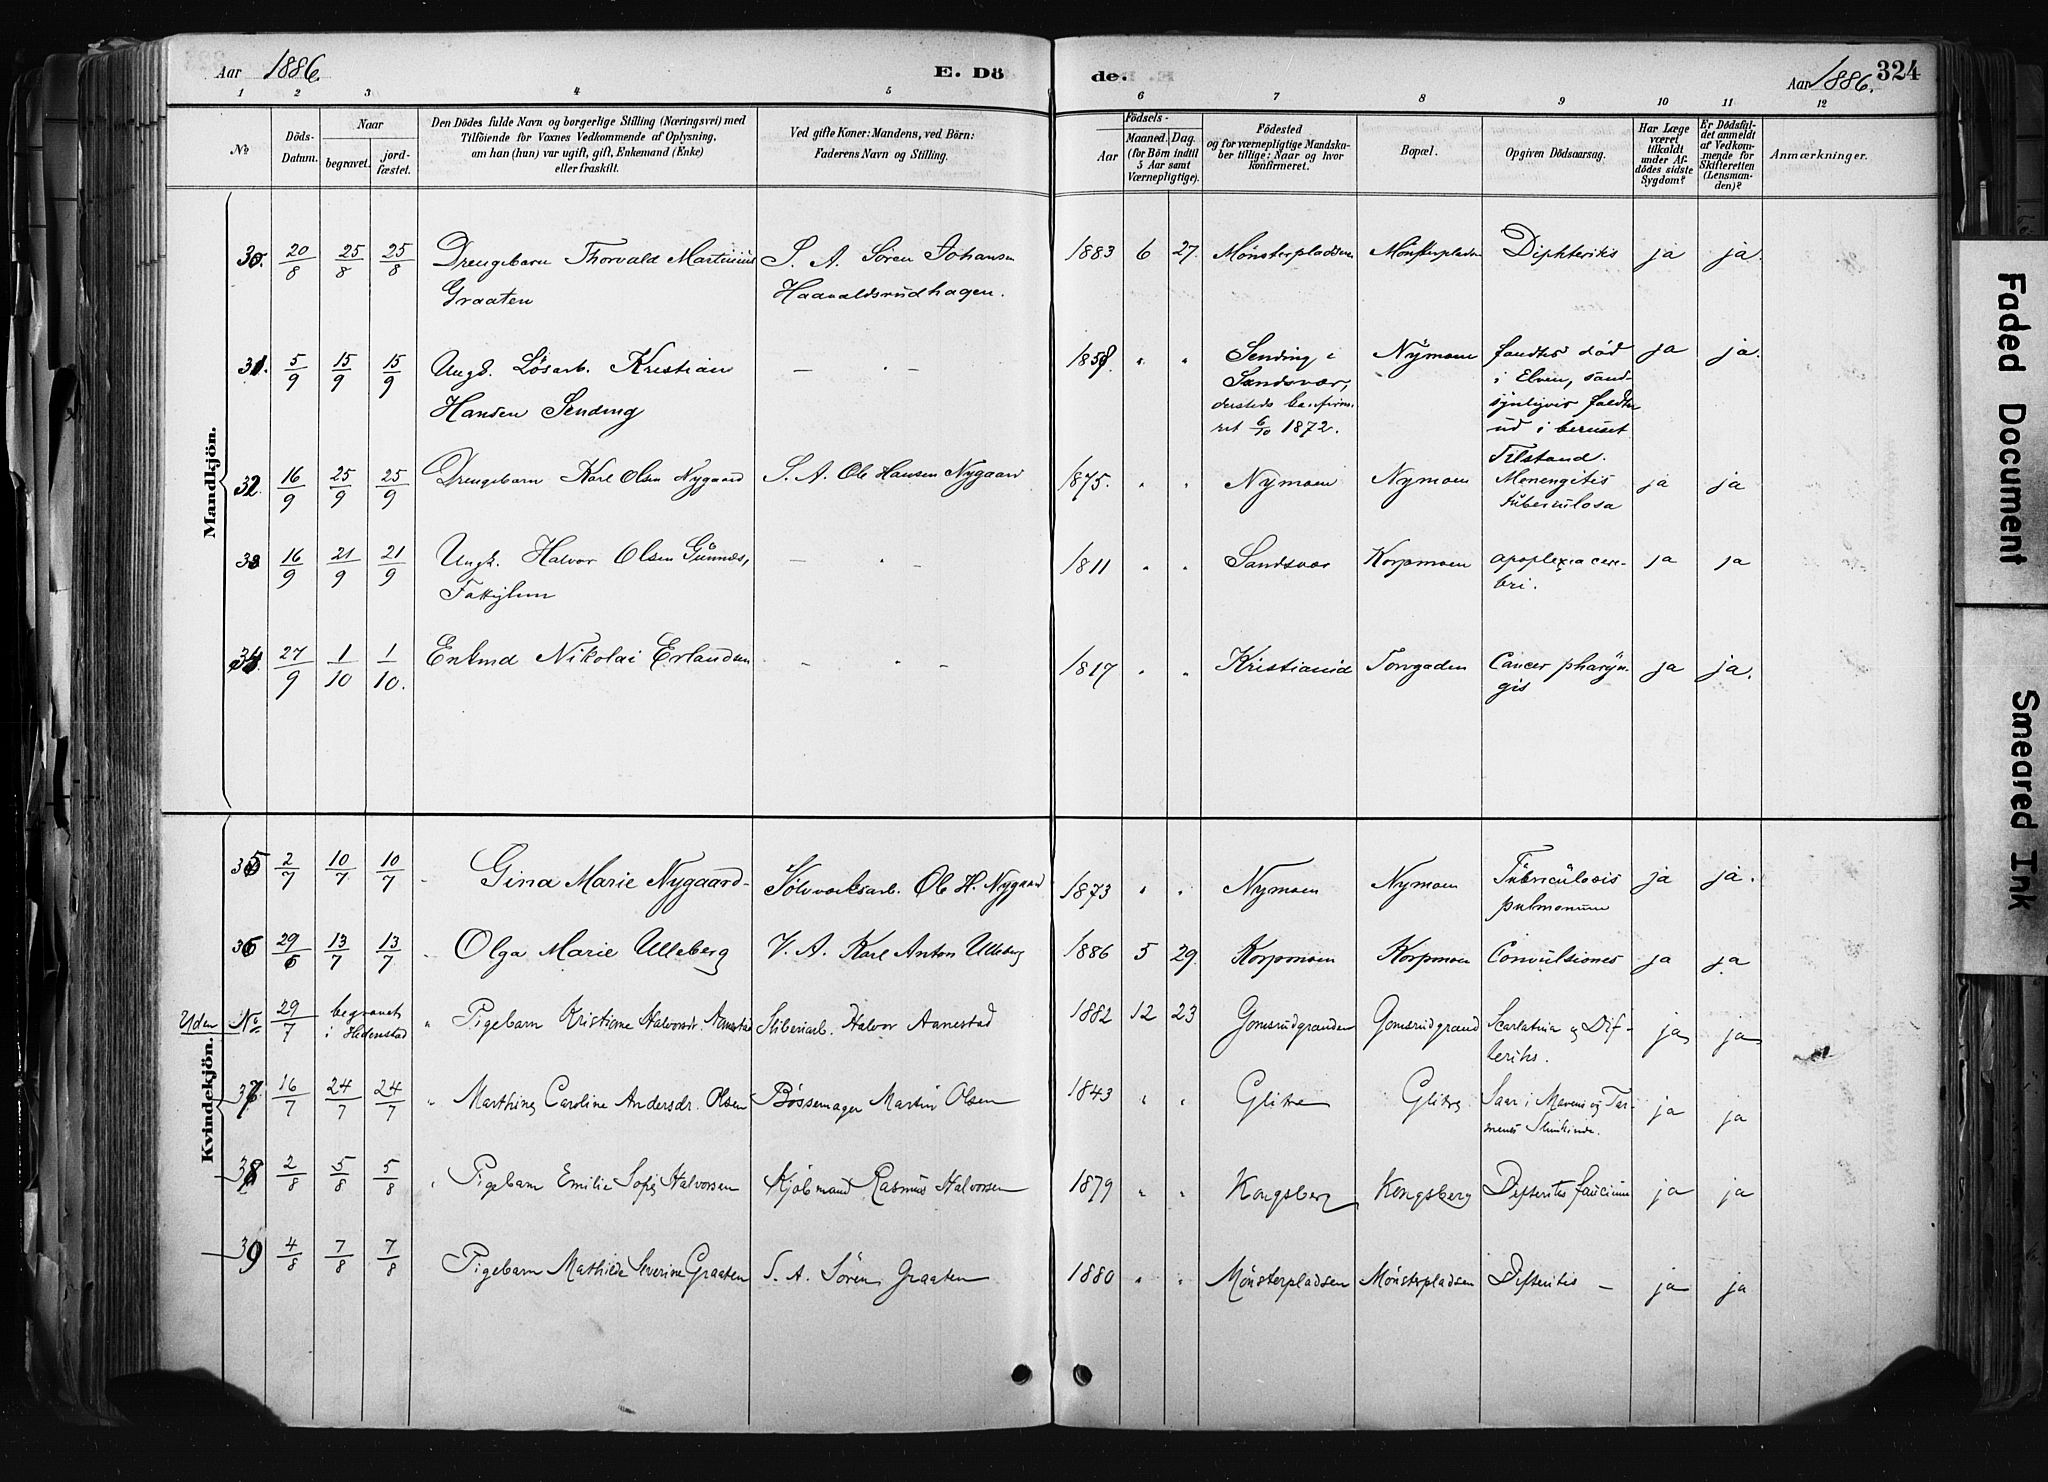 Aar 1886 E. Dö de. Aar 1886. 324
1 2 3 4 5 6 7 8 9 10 11 12
No. Döds-Datum. Naar begravet. jord-fæstet.
Den Dödes fulde Navn og borgerlige Stilling (Næringsvei) med
Tilföiende for Voxnes Vedkommende af Oplysning,
om han (hun) var ugift, gift, Enkemand (Enke)
eller fraskilt.
Ved gifte Koner: Mandens, ved Börn:
Faderens Navn og Stilling.
Födsels-
Aar Maaned. Dag.
(for Börn indtil
5 Aar samt
Værnepligtige).
Födested
og for værnepligtige Mandska-
ber tillige: Naar og hvor
konfirmeret.
Bopæl.
Opgiven Dödsaarsag.
Har Læge
været
tilkaldt
under Af-
dödes sidste
Sygdom?
Er Dödsfal-
det anmeldt
af Vedkom-
mende for
Skifteretten
(Lensman-
den)?
Anmærkninger.
Mandkjön.
30. 20/8 25/8 25/8 Drengebarn Thorvald Martinius S. A. Sören Johansen 1883 6 27. Mönsterpladsen Mönsterpladsen Diphteritis ja ja.
Graaten Haavaldsrudhagen.
31. 5/9 15/9 15/9 Ungk. Lösarb. Kristian — " — 1858 " " Sending i Nymoen fandtes död ja ja.
Hansen Sending Sandsvær, i Elven, sand-
dersteds konfirme- synligvis faldt
ret 6/10 1872. ud i beruset
Tilstand.
32. 16/9 25/9 25/9 Drengebarn Karl Olsen Nygaard S. A. Ole Hansen Nygaard 1875. " " Nymoen Nymoen Menengitis ja ja
tuberculosa
33 16/9 21/9 21/9 Ungk. Halvor Olsen Gunnes, — " — 1811 " " Sandsvær Korpmoen apoplexia cere- ja ja
Fattiglem bri.
34. 27/9 1/10 1/10. Enkmd Nikolai Erlandsen — " — 1817 " " Kristiania Torvgaden Cancer pharyn- ja ja.
gis
Kvindekjön.
35 2/7 10/7 10/7 Gina Marie Nygaard Sölvverksarb. Ole H. Nygaard 1873 " " Nymoen Nymoen Tuberculosis ja ja.
pulmonum
36 29/6 13/7 13/7 " Olga Marie Ulleberg V. A. Karl Anton Ulleberg 1886 5 29. Korpmoen Korpmoen Convulsiones ja ja
Uden No. 29/7 begravet " Pigebarn Kristiane Halvorsdr. Aanestad Stiberiarb. Halvor Aanestad 1882 12 23 Gomsrudgranden Gomsrudgrand Scarlatina og Dif- ja ja
i Hedenstad teritis.
37. 16/7 24/7 24/7 " Marthine Caroline Andersdr. Olsen Bössemager Martin Olsen 1843 " " Glitre Glitre Saar i Mavens og Tar- ja ja
menes Slimhinde.
38 2/8 5/8 5/8 " Pigebarn Emilie Sofie Halvorsen Kjöbmand Rasmus Halvorsen 1879 " " Kongsberg Kongsberg Difteritis faucium ja ja
39 4/8 7/8 7/8 Pigebarn Mathilde Severine Graaten S. A. Sören Graaten 1880 " " Mönsterpladsen Mönsterpladsen Difteritis — ja ja
Faded Document
Smeared Ink